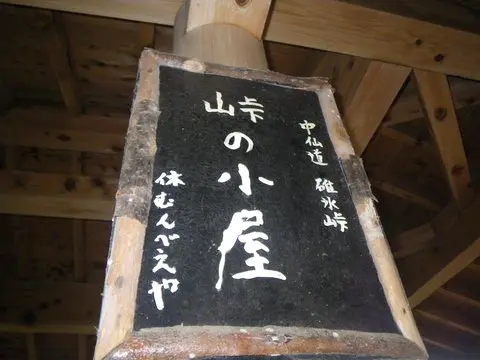 中仙道 碓氷峠
峠の小屋
休むんべえや